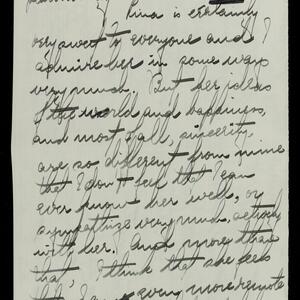 Rina is certainly
very sweet to everyone and I
admire her in some ways
very much. But her ideas
of the world and happiness,
and most of all, sincerity
are so different from mine
that I don't feel that I can
ever know her well, or
sympathize very much, actively
with her. And more than
that, I think that she feels
even more remote